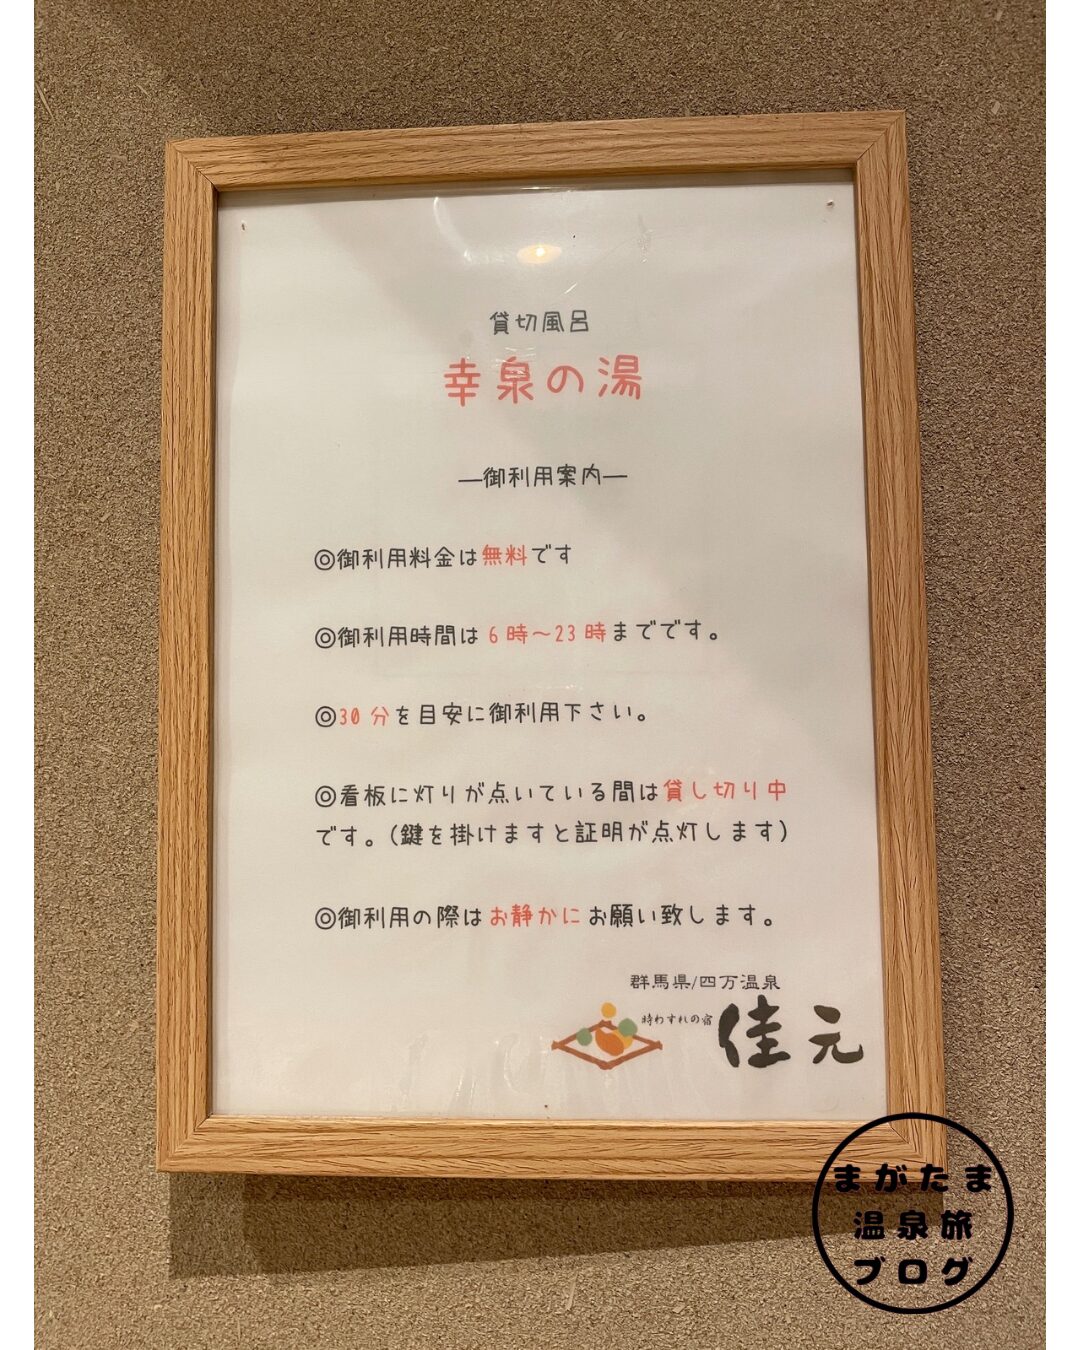 貸切風呂
幸泉の湯
―御利用案内―
◎御利用料金は無料です
◎御利用時間は6時～23時までです。
◎30分を目安に御利用下さい。
◎看板に灯りが点いている間は貸し切り中
です。(鍵を掛けますと証明が点灯します)
◎御利用の際はお静かにお願い致します。
群馬県/四万温泉
時わすれの宿 佳元
まがたま
温泉旅
ブログ